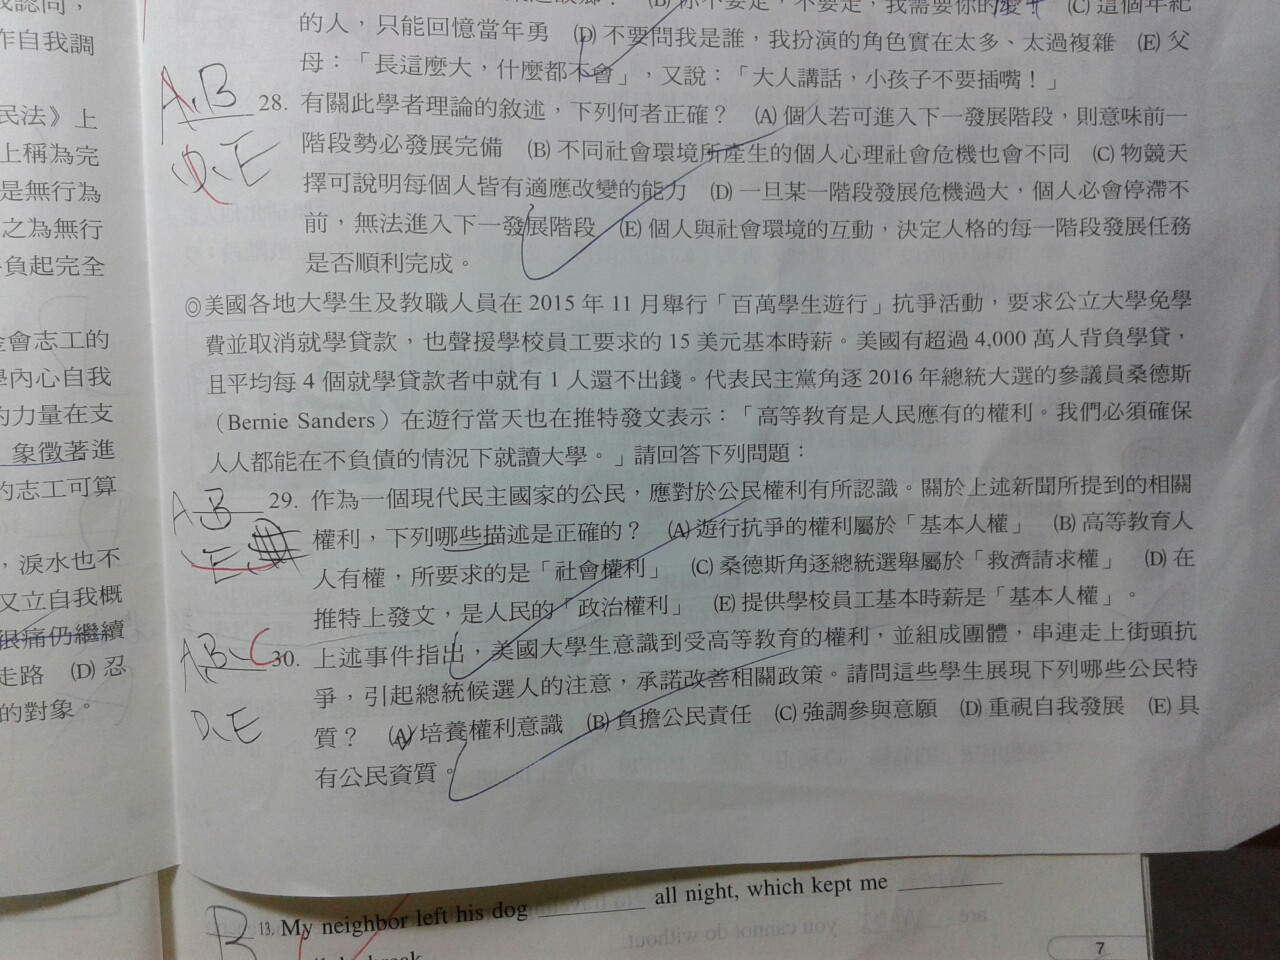 我認同，
作自我調
民法》上
上稱為完
是無行為
之為無行
負起完全
金會志工的
學內心自我
的力量在支
象徵著進
的志工可算
，淚水也不
又立自我概
很痛仍繼續
走路 (D) 忍
的對象。
(B) 你不要走，不要走，我需要你的愛 (C) 這個年紀
的人，只能回憶當年勇 (D) 不要問我是誰，我扮演的角色實在太多、太過複雜 (E) 父
母：「長這麼大，什麼都不會」，又說：「大人講話，小孩子不要插嘴！」
A、B
D、E
28. 有關此學者理論的敘述，下列何者正確？ (A) 個人若可進入下一發展階段，則意味前一
階段勢必發展完備 (B) 不同社會環境所產生的個人心理社會危機也會不同 (C) 物競天
擇可說明每個人皆有適應改變的能力 (D) 一旦某一階段發展危機過大，個人必會停滯不
前，無法進入下一發展階段 (E) 個人與社會環境的互動，決定人格的每一階段發展任務
是否順利完成。
◎美國各地大學生及教職人員在 2015 年 11 月舉行「百萬學生遊行」抗爭活動，要求公立大學免學
費並取消就學貸款，也聲援學校員工要求的 15 美元基本時薪。美國有超過 4,000 萬人背負學貸，
且平均每 4 個就學貸款者中就有 1 人還不出錢。代表民主黨角逐 2016 年總統大選的參議員桑德斯
（Bernie Sanders）在遊行當天也在推特發文表示：「高等教育是人民應有的權利。我們必須確保
人人都能在不負債的情況下就讀大學。」請回答下列問題：
A B
、E
29. 作為一個現代民主國家的公民，應對於公民權利有所認識。關於上述新聞所提到的相關
權利，下列哪些描述是正確的？ (A) 遊行抗爭的權利屬於「基本人權」 (B) 高等教育人
人有權，所要求的是「社會權利」 (C) 桑德斯角逐總統選舉屬於「救濟請求權」 (D) 在
推特上發文，是人民的「政治權利」 (E) 提供學校員工基本時薪是「基本人權」。
A B、C
D、E
30. 上述事件指出，美國大學生意識到受高等教育的權利，並組成團體，串連走上街頭抗
爭，引起總統候選人的注意，承諾改善相關政策。請問這些學生展現下列哪些公民特
質？ (A) 培養權利意識 (B) 負擔公民責任 (C) 強調參與意願 (D) 重視自我發展 (E) 具
有公民資質。
B 13. My neighbor left his dog ________ all night, which kept me ________
7